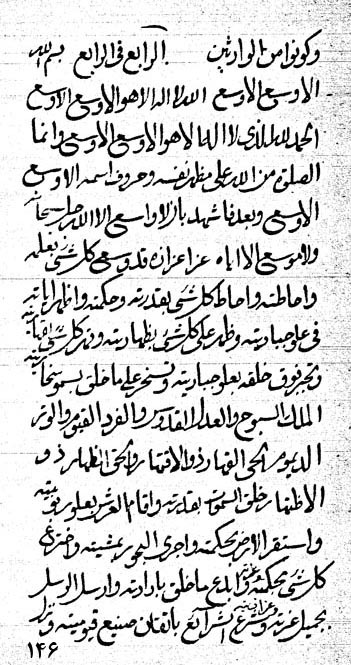 وكونوا من الوارثين الرابع في الرابع بسم الله
الاوسع الاوسع الله لا اله الا هو الاوسع الاوسع
الحمد لله الذي لا اله الا هو الاوسع الاوسع وانما
الصلوة من الله على مظهر نفسه وحروف اسمه الاوسع
الاوسع وبعد فاشهد بان لا واسع الا الله جل سبحانه
ولا موسع الا اياه عز اعزازه قد وسع كل شئ بعلمه
واحاطته واحاط كل شئ بقدرته وحكمته واظهر اياته
في علو جباريته وظهر على كل شئ بظهاريته وقهر كل شئ
وتجبر فوق خلقه بعلو جباريته وتسخر على ما خلق بسمو
الملك السبوح والعدل القدوس والفرد القيوم والوتر
الديموم الحي القهار ذو الاقتهار والحق الظهار ذو
الاظتهار خلق السموات بقدرته واقام العرش بعلو
واستقر الارض بحكمته واجرى البحور بمشيته واخترع
كل شئ بحكمته وابدع ما خلق بارادته وارسل الرسل
عزته وشرع الشرائع باتقان صنيع قيوميته
١٤٦